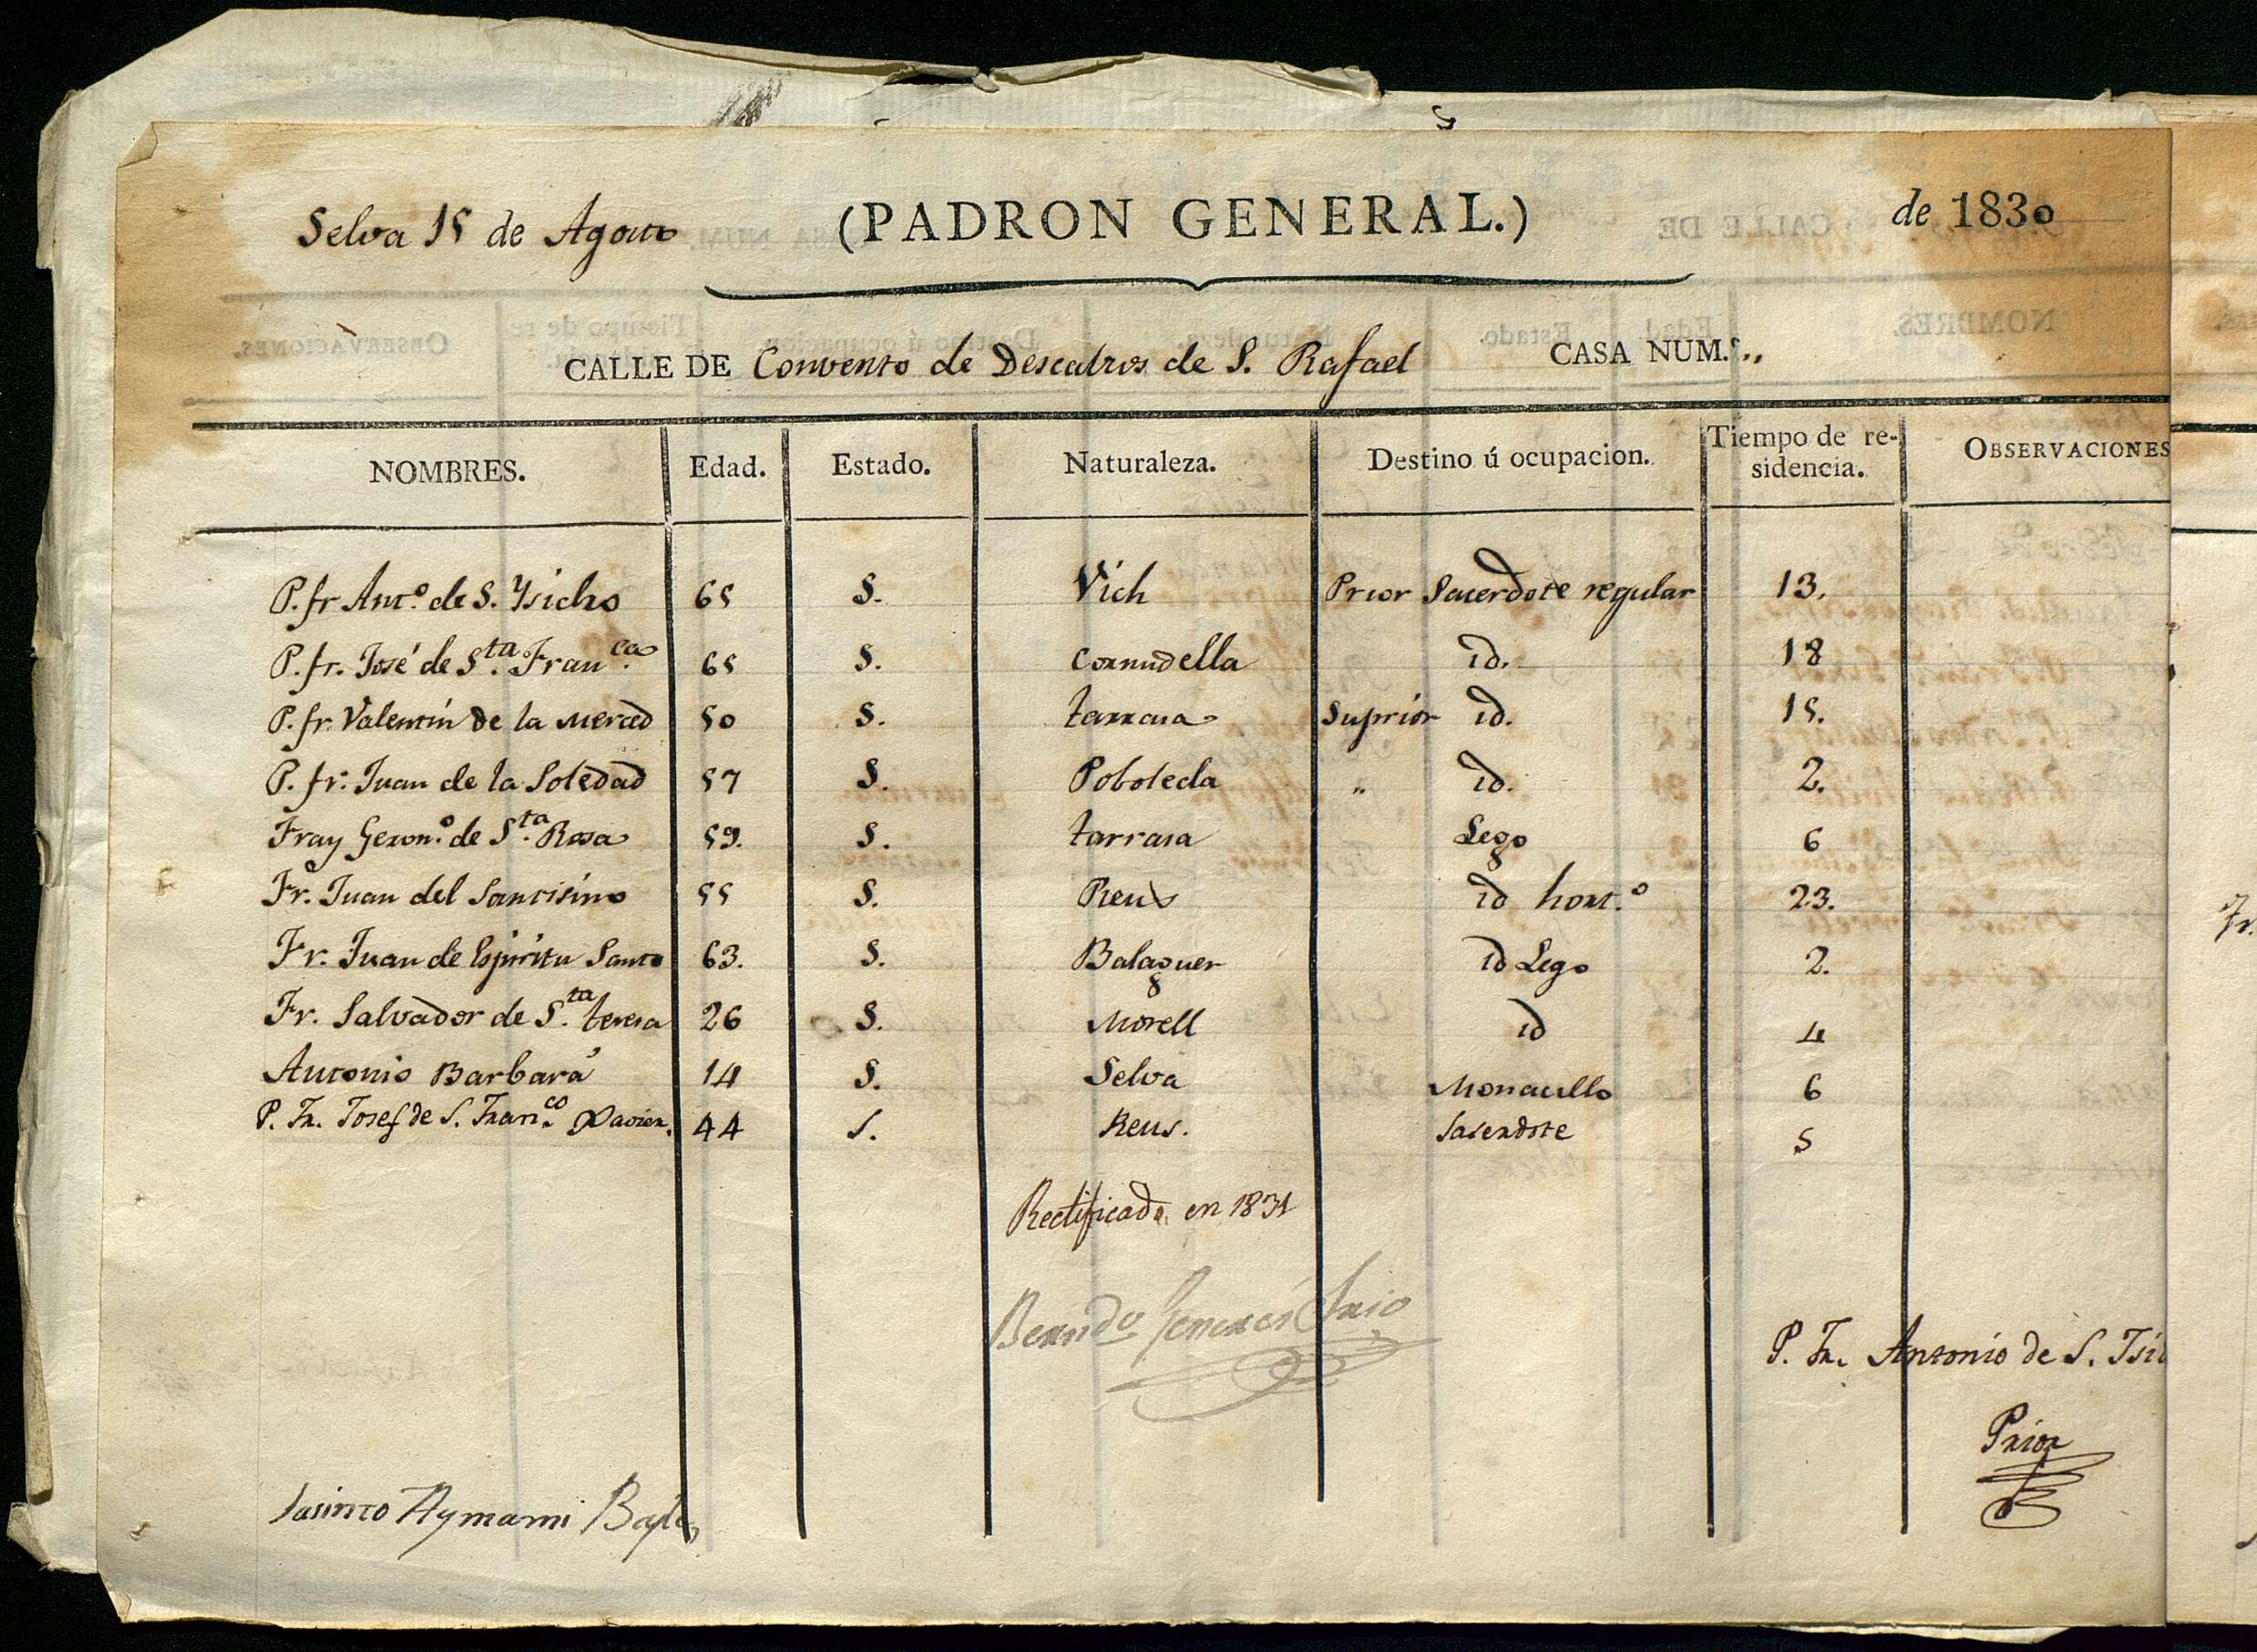 Selva 15 de Agosto (PADRON GENERAL.) de 1830
CALLE DE Convento de Descalzos de S. Rafael CASA NUM.º ,,
NOMBRES. Edad. Estado. Naturaleza. Destino ú ocupacion. Tiempo de residencia. OBSERVACIONES
P. fr Ant.º de S. Ysidro 65 S. Vich Prior Sacerdote regular 13.
P. fr. José de S.ta Fran.ca 65 S. Cornudella id. 18
P. fr. Valentín de la Merced 50 S. tarrasa Suprior id. 15.
P. fr. Juan de la Soledad 57 S. Poboleda " id. 2.
Fray Geron.º de S.ta Rosa 59. S. tarrasa Lego 6
Fr. Juan del Santisimo 55 S. Reus id hort.º 23.
Fr. Juan de Espiritu Santo 63. S. Balaguer id Lego 2.
Fr. Salvador de S.ta teresa 26 S. Morell id 4
Antonio Barbará 14 S. Selva Monacillo 6
P. Fr. Josef de S. Fran.co Xavier. 44 S. Reus. Sacerdote 5
Rectificado en 1831
P. Fr. Antonio de S. Isid
Prior
Jasinto Aymami Bayle
Fr.